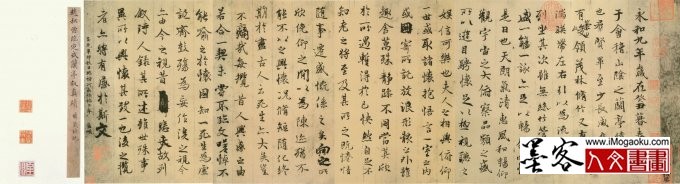 永和九年歲在癸丑暮春
于會稽山陰之蘭亭
也羣賢畢至少長咸
有峻領茂林脩竹又
湍暎帶左右引以為流
列坐其次雖無絲竹
盛一觴一詠亦足以暢
是日也天朗氣清惠風和暢仰
觀宇宙之大俯察品類之盛
所以遊目騁懷足以極視聽之
娛信可樂也夫人之相與俯仰
一世或取諸懷抱悟言一室之內
或因寄所託放浪形骸之外雖
趣舍萬殊靜躁不同當其欣
於所遇蹔得於己怏然自足不
知老之將至及其所之既惓情
隨事遷感慨係之矣向之所
欣俛仰之間以為陳迹猶不
能不以之興懷況脩短隨化終
期於盡古人云死生亦大矣豈
不痛哉每攬昔人興感之由
若合一契未嘗不臨文嗟悼不
能喻之於懷固知一死生為虛
誕齊彭殤為妄作後之視今
亦由今之視昔悲夫故列
敘時人錄其所述雖世殊事
異所以興懷其致一也後之攬
者亦將有感於斯文
趙松雪臨定武蘭亭敘真蹟
墨客
人文書畫
www.imogaoku.com